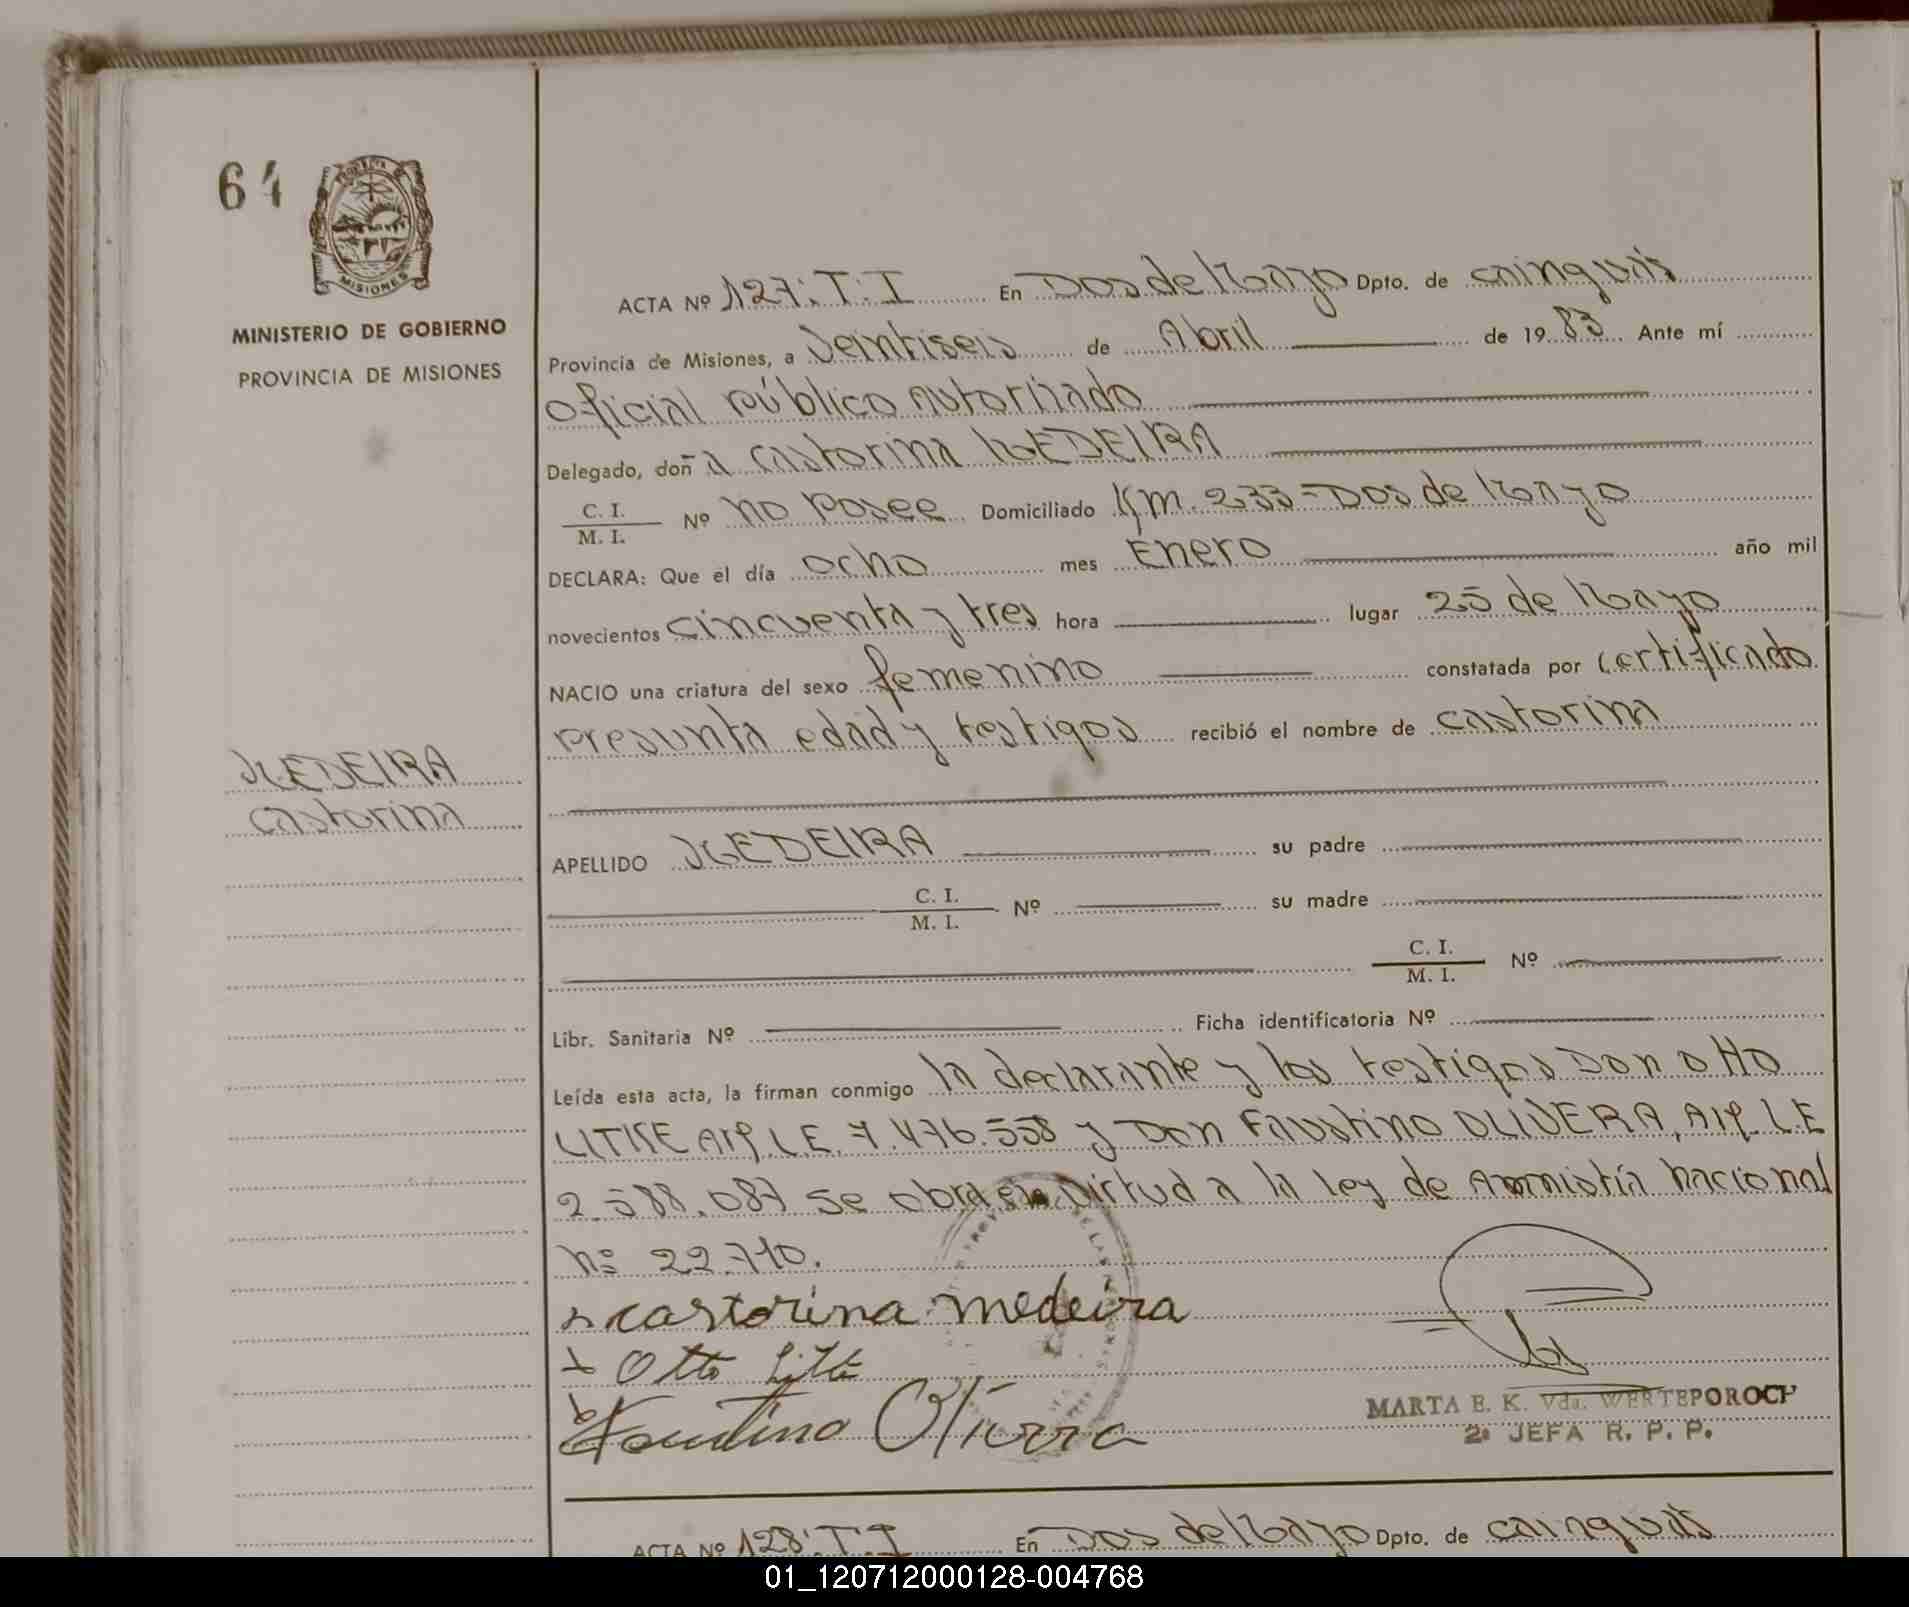 64
MISIONES
MINISTERIO DE GOBIERNO
PROVINCIA DE MISIONES
MEDEIRA
Castorina
ACTA Nº 127: T: I En Dos de Mayo Dpto. de Cainguás
Provincia de Misiones, a Veintiseis de Abril de 1983 Ante mí
Oficial público Autorizado
Delegado, doña Castorina MEDEIRA
C. I.
M. I. Nº no posee Domiciliado Km. 233 - Dos de Mayo
DECLARA: Que el día ocho mes Enero año mil
novecientos cincuenta y tres hora lugar 25 de Mayo
NACIO una criatura del sexo femenino constatada por certificado
presunta edad y testigos recibió el nombre de Castorina
APELLIDO MEDEIRA su padre
C. I.
M. I. Nº su madre
C. I.
M. I. Nº
Libr. Sanitaria Nº Ficha identificatoria Nº
Leída esta acta, la firman conmigo la declarante y los testigos Don Otto
LITKE L.E. 7.476.558 y Don Faustino OLIVERA, L.E
2.588.087 se obra en virtud a la ley de Amnistía Nacional
nº 22.710.
castorina medeira
Otto
Faustino
MARTA E. K. Vda. WERTEPOROCH
2ª JEFA R. P. P.
ACTA Nº 128: T: I En Dos de Mayo Dpto. de Cainguás
01_120712000128-004768